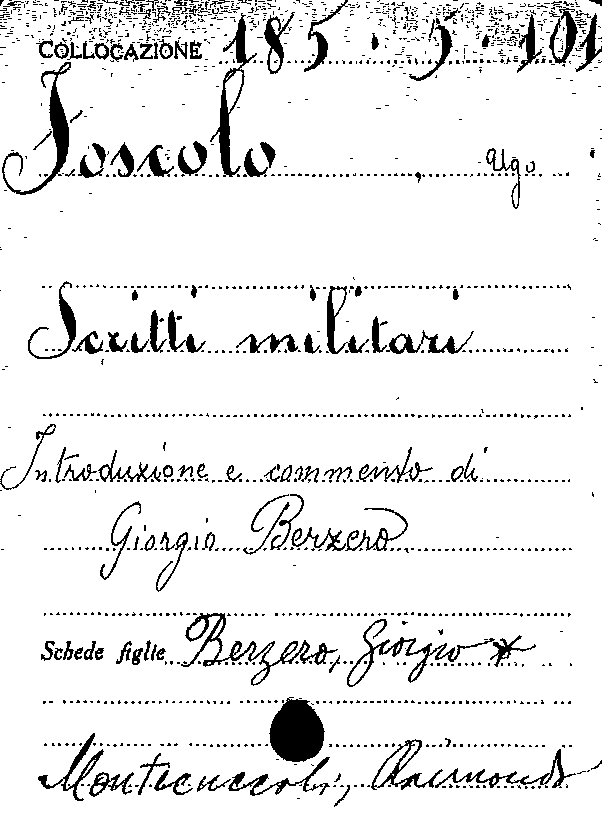 COLLOCAZIONE 185.5.101
Foscolo, Ugo
Scritti militari
Introduzione e commento di
Giorgio Berzero
Schede figlie Berzero, Giorgio *
Montecuccoli, Raimondo